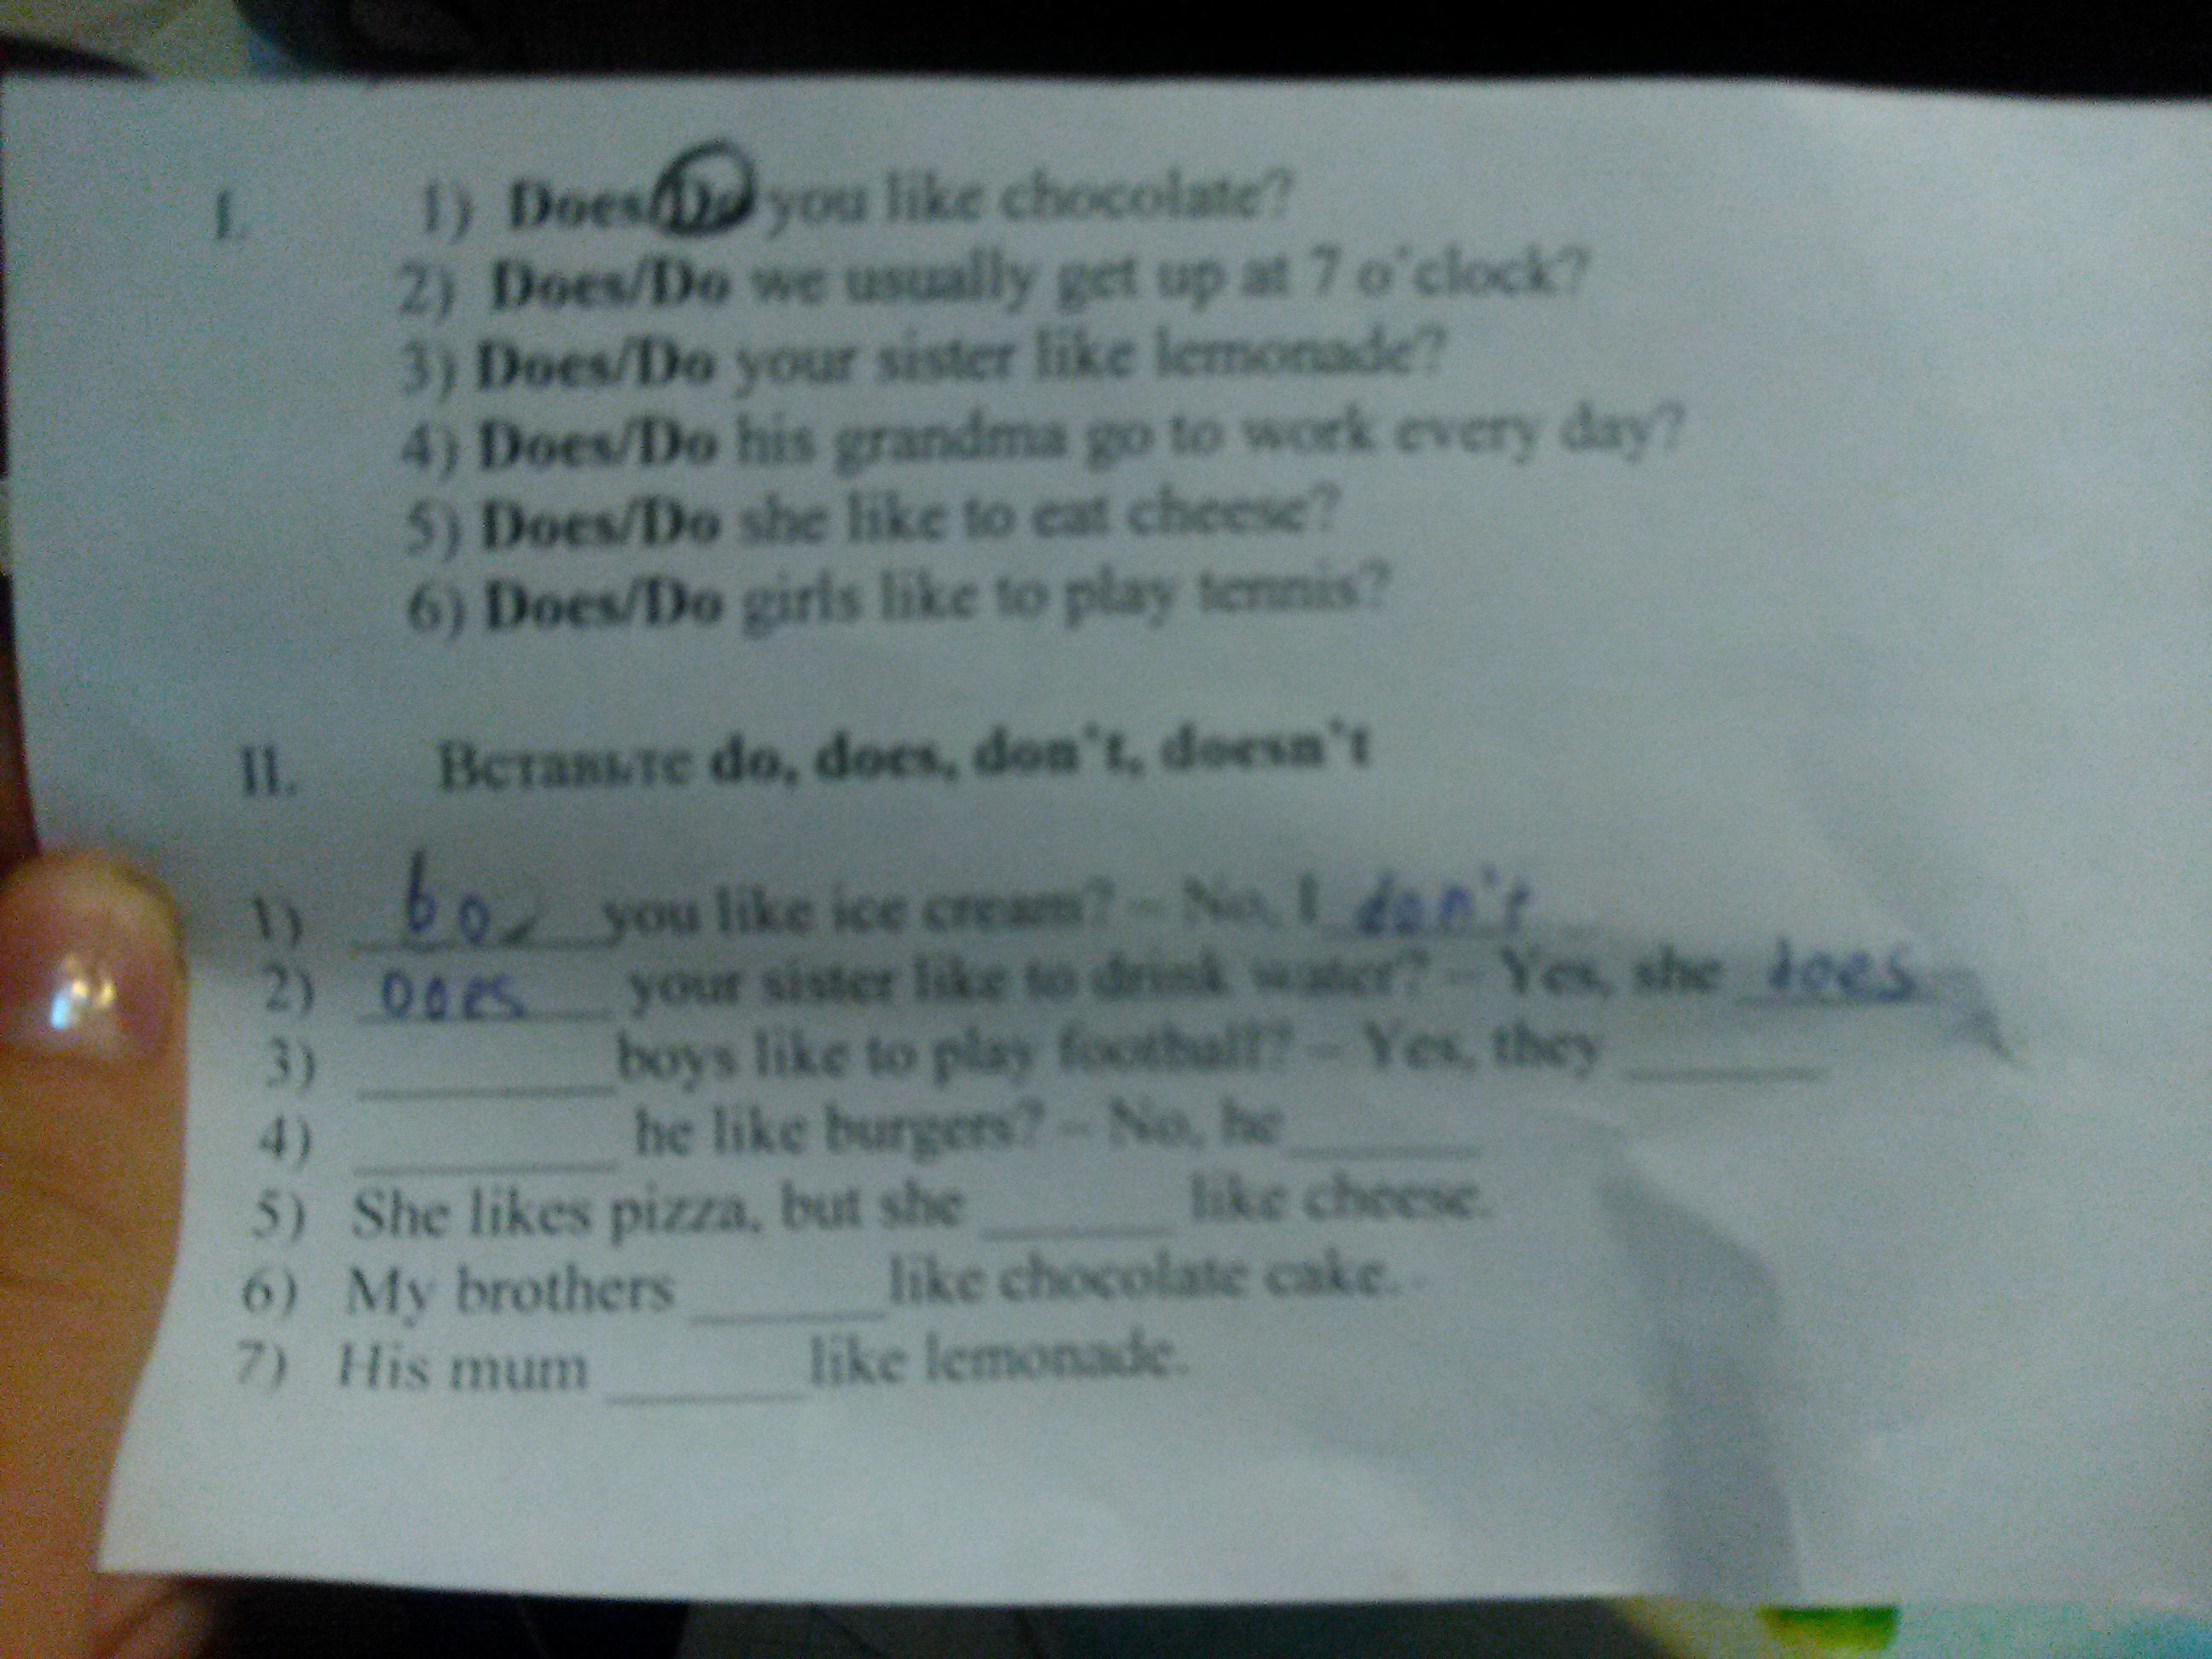 I. 1) Does/Do you like chocolate?
2) Does/Do we usually get up at 7 o'clock?
3) Does/Do your sister like lemonade?
4) Does/Do his grandma go to work every day?
5) Does/Do she like to eat cheese?
6) Does/Do girls like to play tennis?
II. Вставьте do, does, don't, doesn't
1) Do you like ice cream? – No, I don't
2) Does your sister like to drink water? – Yes, she does
3) ________ boys like to play football? – Yes, they ______
4) ________ he like burgers? – No, he ______
5) She likes pizza, but she ______ like cheese.
6) My brothers ______ like chocolate cake.
7) His mum ______ like lemonade.